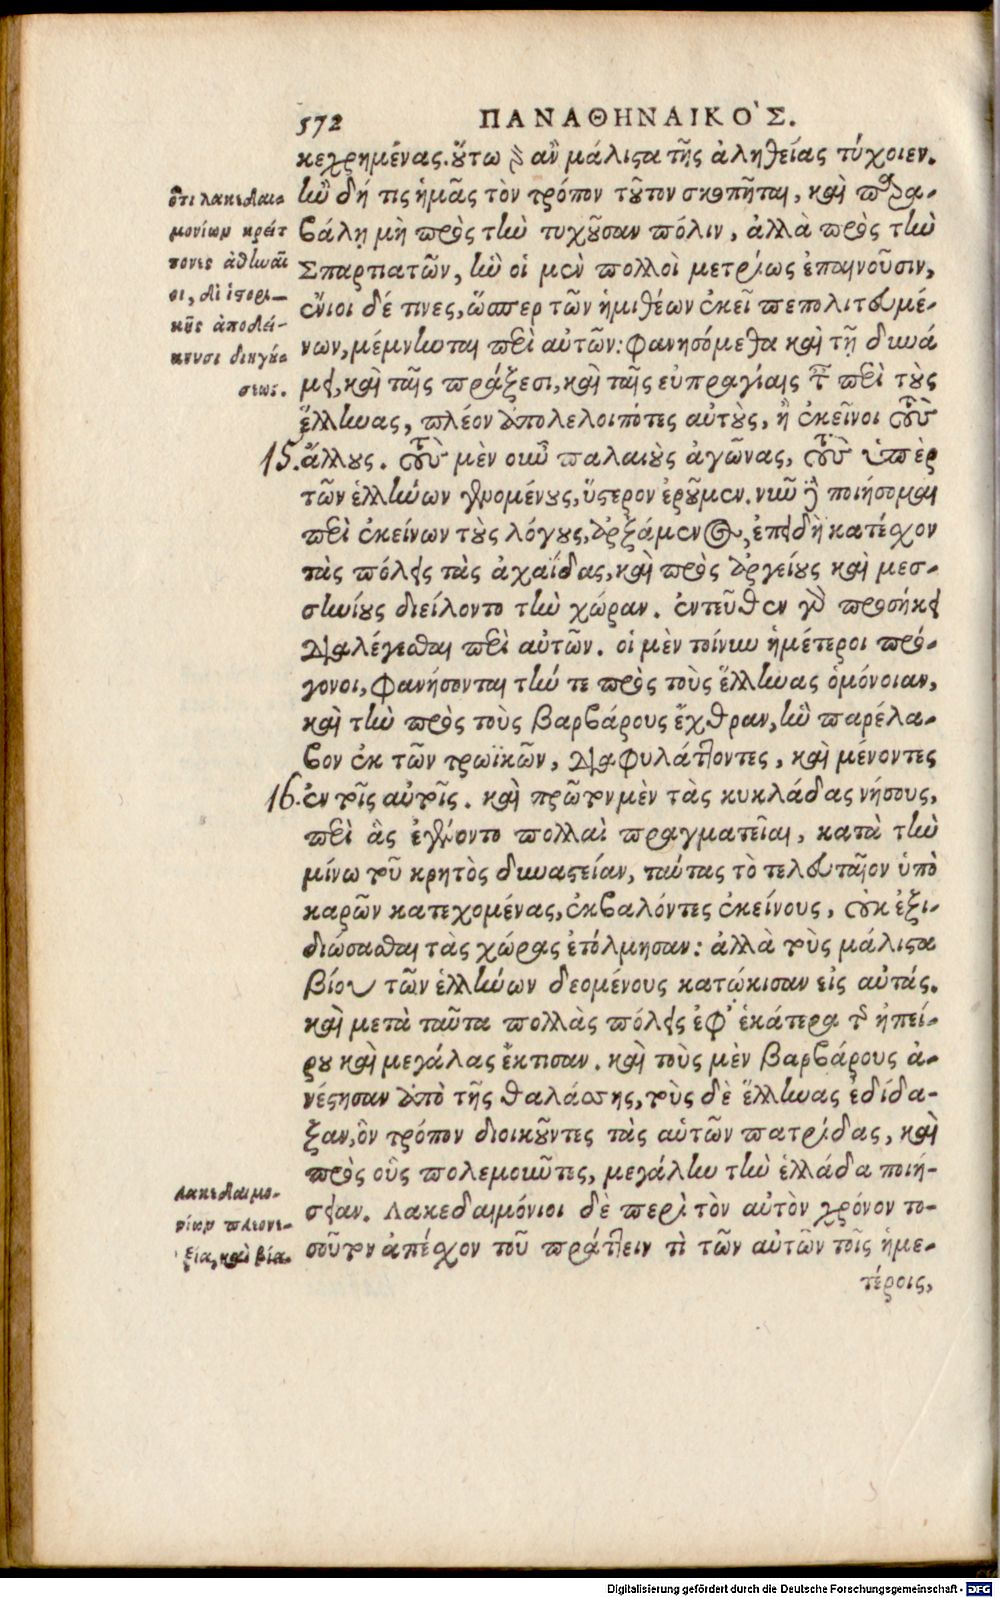 572 ΠΑΝΑΘΗΝΑΙΚΟ`Σ.
κεχρημένας. οὕτω γὰρ ἂν μάλιστα τῆς ἀληθείας τύχοιεν.
ἢν δή τις ἡμᾶς τὸν τρόπον τοῦτον σκοπῆται, καὶ παρα-
βάλῃ μὴ πρὸς τὴν τυχοῦσαν πόλιν, ἀλλὰ πρὸς τὴν
Σπαρτιατῶν, ἣν οἱ μὲν πολλοὶ μετρίως ἐπαινοῦσιν,
ἔνιοι δέ τινες, ὥσπερ τῶν ἡμιθέων ἐκεῖ πεπολιτευμέ-
νων, μέμνηνται περὶ αὐτῶν: φανησόμεθα καὶ τῇ δυνά
μει, καὶ ταῖς πράξεσι, καὶ ταῖς εὐπραγίαις ταῖς περὶ τοὺς
ἕλληνας, πλέον ἀπολελοιπότες αὐτοὺς, ἢ ἐκεῖνοι τοὺς
15. ἄλλους. τοὺς μὲν οὖν παλαιοὺς ἀγῶνας, τοὺς ὑπὲρ
τῶν ἑλλήνων γενομένους, ὕστερον ἐροῦμεν. νῦν δὲ ποιήσομαι
περὶ ἐκείνων τοὺς λόγους, ἀρξάμενος, ἐπειδὴ κατέσχον
τὰς πόλεις τὰς ἀχαΐδας, καὶ πρὸς ἀργείους καὶ μεσ-
σηνίους διείλοντο τὴν χώραν. ἐντεῦθεν γὰρ προσήκει
διαλέγεσθαι περὶ αὐτῶν. οἱ μὲν τοίνυν ἡμέτεροι πρό-
γονοι, φανήσονται τήν τε πρὸς τοὺς ἕλληνας ὁμόνοιαν,
καὶ τὴν πρὸς τοὺς βαρβάρους ἔχθραν, ἣν παρέλα-
βον ἐκ τῶν τρωϊκῶν, διαφυλάττοντες, καὶ μένοντες
16. ἐν τοῖς αὐτοῖς. καὶ πρῶτον μὲν τὰς κυκλάδας νήσους,
περὶ ἃς ἐγένοντο πολλαὶ πραγματεῖαι, κατὰ τὴν
μίνω τοῦ κρητὸς δυναστείαν, ταύτας τὸ τελευταῖον ὑπὸ
καρῶν κατεχομένας, ἐκβαλόντες ἐκείνους, οὐκ ἐξι-
διώσασθαι τὰς χώρας ἐτόλμησαν: ἀλλὰ τοὺς μάλιστα
βίου τῶν ἑλλήνων δεομένους κατῴκισαν εἰς αὐτάς.
καὶ μετὰ ταῦτα πολλὰς πόλεις ἐφ' ἑκάτερα τῆς ἠπεί-
ρου καὶ μεγάλας ἔκτισαν. καὶ τοὺς μὲν βαρβάρους ἀ-
νέστησαν ἀπὸ τῆς θαλάσσης, τοὺς δὲ ἕλληνας ἐδίδα-
ξαν, ὃν τρόπον διοικοῦντες τὰς αὑτῶν πατρίδας, καὶ
πρὸς οὓς πολεμοῦντες, μεγάλην τὴν ἑλλάδα ποιή-
σειαν. Λακεδαιμόνιοι δὲ περὶ τὸν αὐτὸν χρόνον το-
σοῦτον ἀπέσχον τοῦ πράττειν τὶ τῶν αὐτῶν τοῖς ἡμε-
τέροις,
ὅτι λακεδαι-
μονίων κρείτ
τονες ἀθηναῖ
οι, δι' ἱστορι-
κῆς ἀποδεί-
κνυσι διηγή-
σεως.
Λακεδαιμο-
νίων πλεονε-
ξία, καὶ βία.
Digitalisierung gefördert durch die Deutsche Forschungsgemeinschaft - DFG